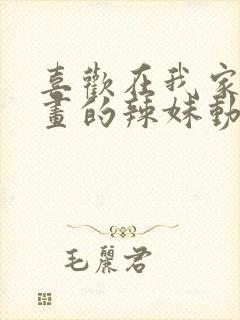 喜歡在我家
畫的辣妹動
毛麗君